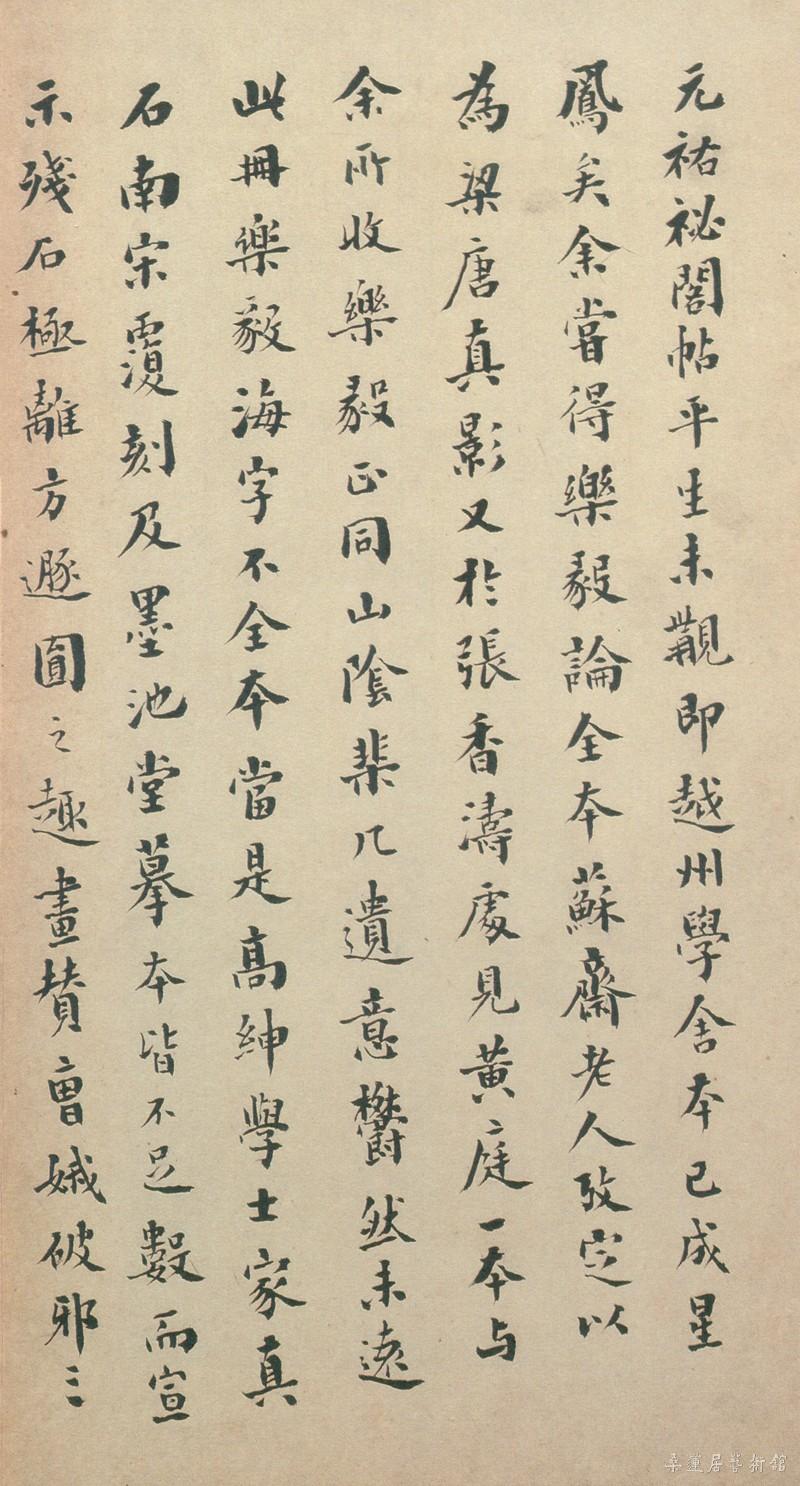 元祐祕閣帖平生未覯即越州學舍本已成星
鳳矣余嘗得樂毅論全本蘇齋老人攷定以
為梁唐真影又於張香濤處見黃庭一本与
余所收樂毅正同山陰棐几遺意欝然未遠
此冊樂毅海字不全本當是高紳學士家真
石南宋覆刻及墨池堂摹本皆不足數而宣
示殘石極離方遯圓之趣畫贊曹娥破邪三
桑蓮居藝術館